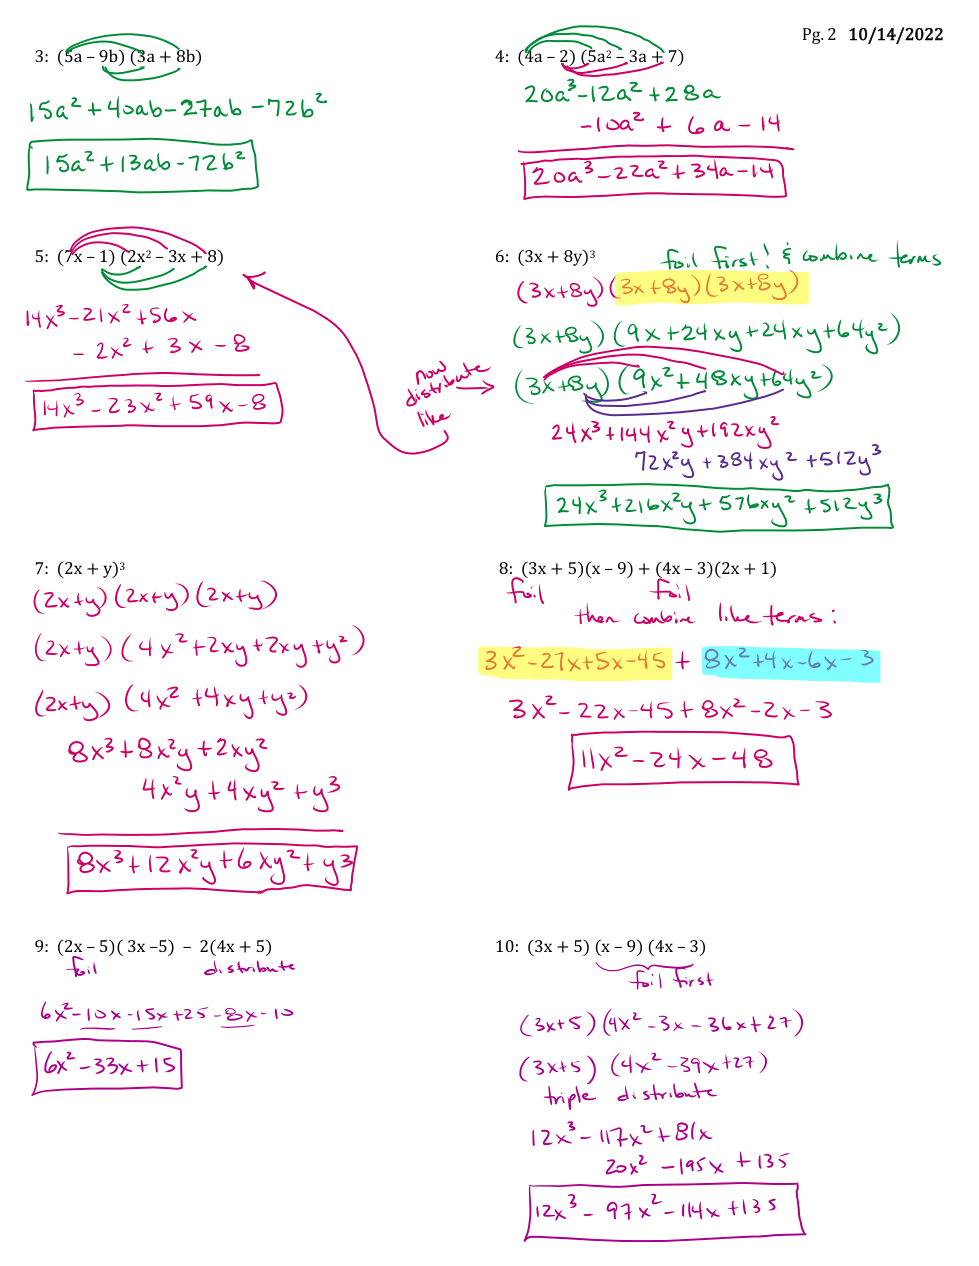 Pg. 2 10/14/2022
3: (5a – 9b) (3a + 8b)
15a² + 40ab - 27ab - 72b²
15a² + 13ab - 72b²
4: (4a – 2) (5a² – 3a + 7)
20a³ - 12a² + 28a
- 10a² + 6a - 14
20a³ - 22a² + 34a - 14
5: (7x – 1) (2x² – 3x + 8)
14x³ - 21x² + 56x
- 2x² + 3x - 8
14x³ - 23x² + 59x - 8
6: (3x + 8y)³
foil first! & combine terms
(3x+8y)(3x+8y)(3x+8y)
(3x+8y)(9x+24xy+24xy+64y²)
now
distribute
like
(3x+8y)(9x²+48xy+64y²)
24x³+144x²y+192xy²
72x²y+384xy²+512y³
24x³+216x²y+576xy²+512y³
7: (2x + y)³
(2x+y)(2x+y)(2x+y)
(2x+y)(4x²+2xy+2xy+y²)
(2x+y)(4x²+4xy+y²)
8x³+8x²y+2xy²
4x²y+4xy²+y³
8x³+12x²y+6xy²+y³
8: (3x + 5)(x – 9) + (4x – 3)(2x + 1)
foil foil
then combine like terms:
3x²-27x+5x-45 + 8x²+4x-6x-3
3x²-22x-45+8x²-2x-3
11x²-24x-48
9: (2x – 5)( 3x –5) – 2(4x + 5)
foil distribute
6x²-10x-15x+25-8x-10
6x²-33x+15
10: (3x + 5) (x – 9) (4x – 3)
foil first
(3x+5)(4x²-3x-36x+27)
(3x+5)(4x²-39x+27)
triple distribute
12x³-117x²+81x
20x²-195x+135
12x³-97x²-114x+135